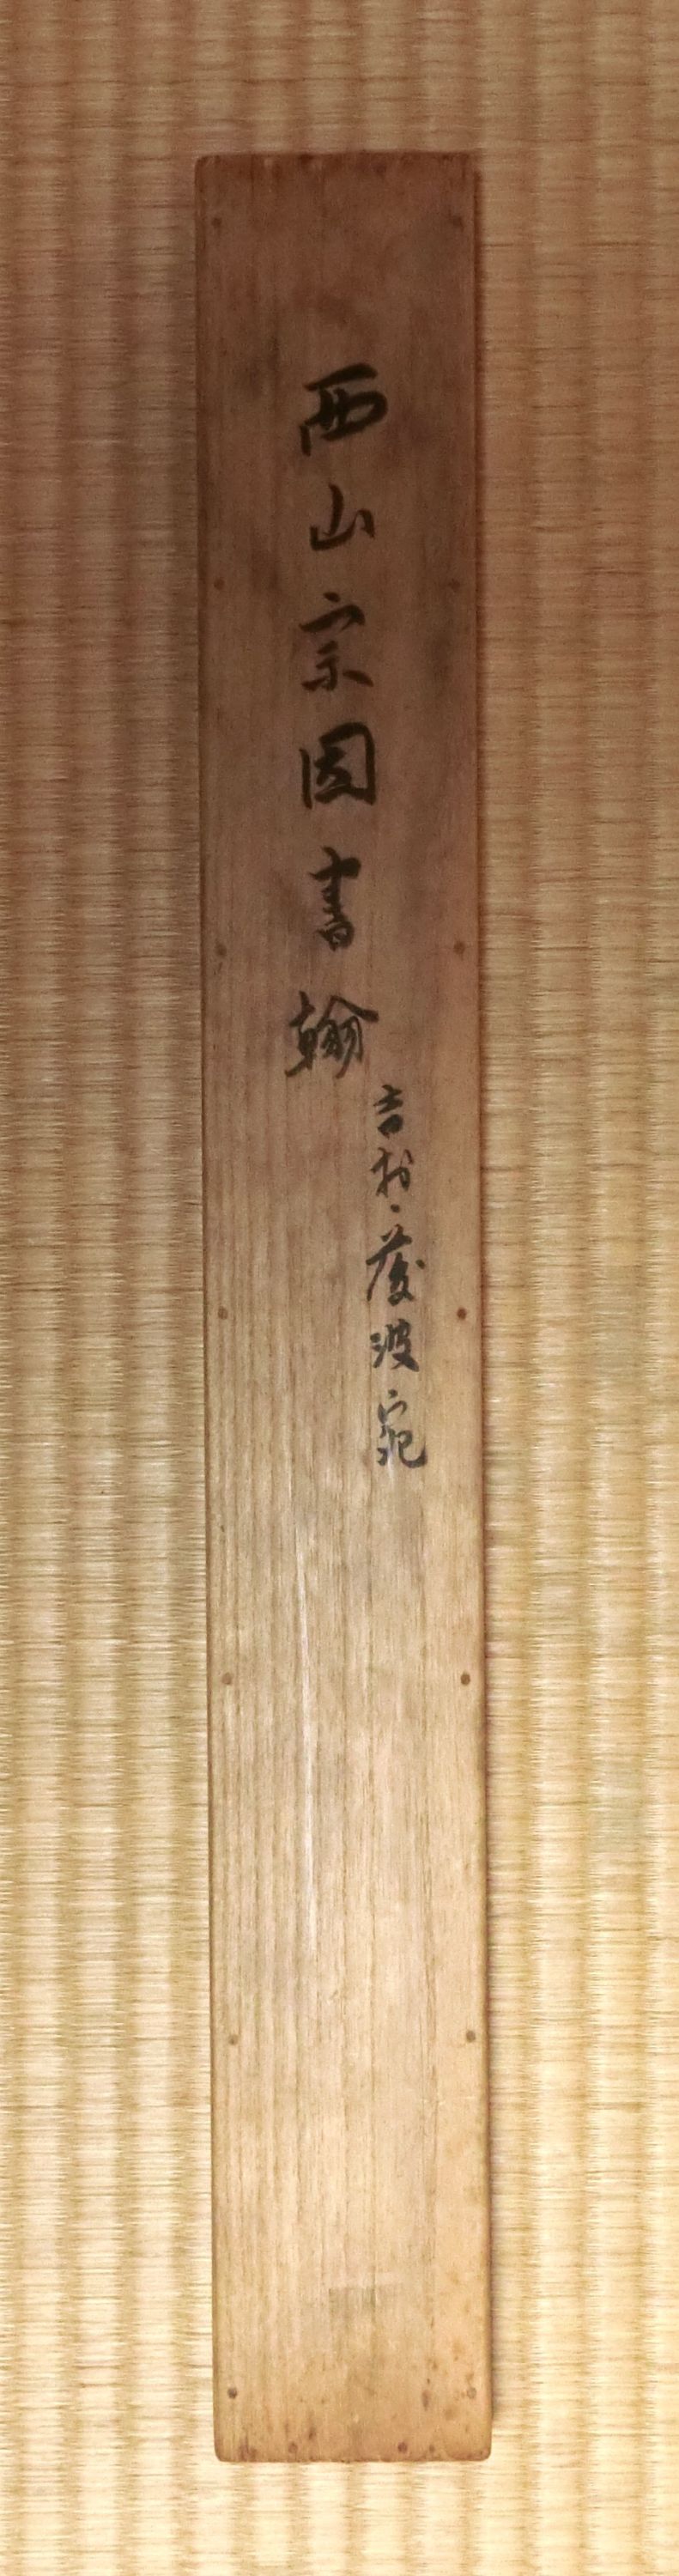 西山宗因書翰
吉村・藤波宛